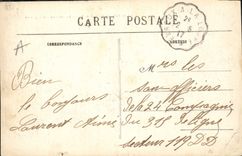 CARTE POSTALE
CORRESPONDANCE
ADRESSE
Bien
le bonjours
Laurent Aimé
Mrs les
sous officiers
de la 24 Compagnie
du 315 de ligne
Secteur 119 DD